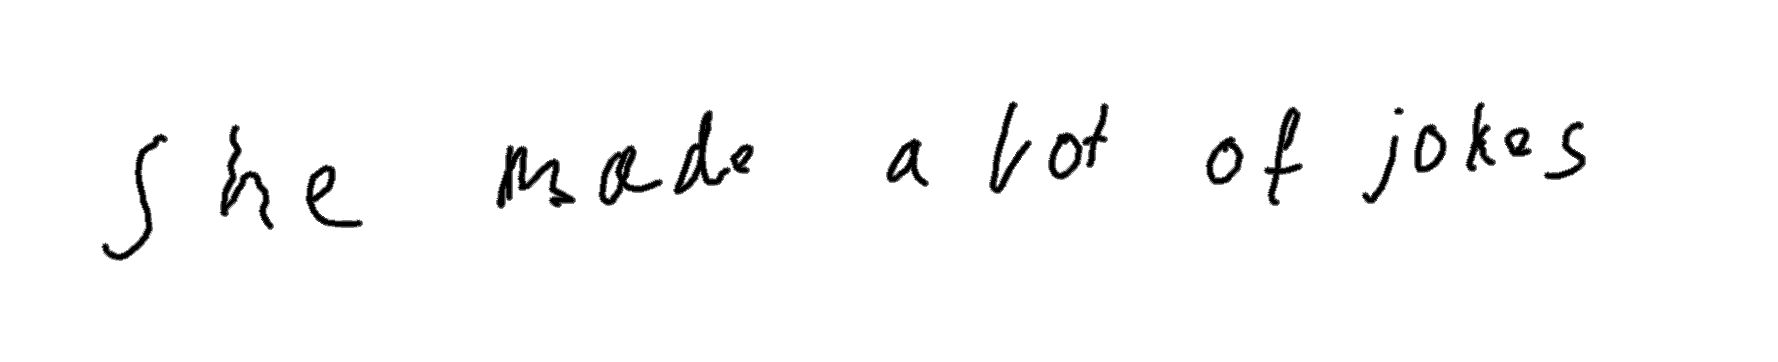 She made a lot of jokes